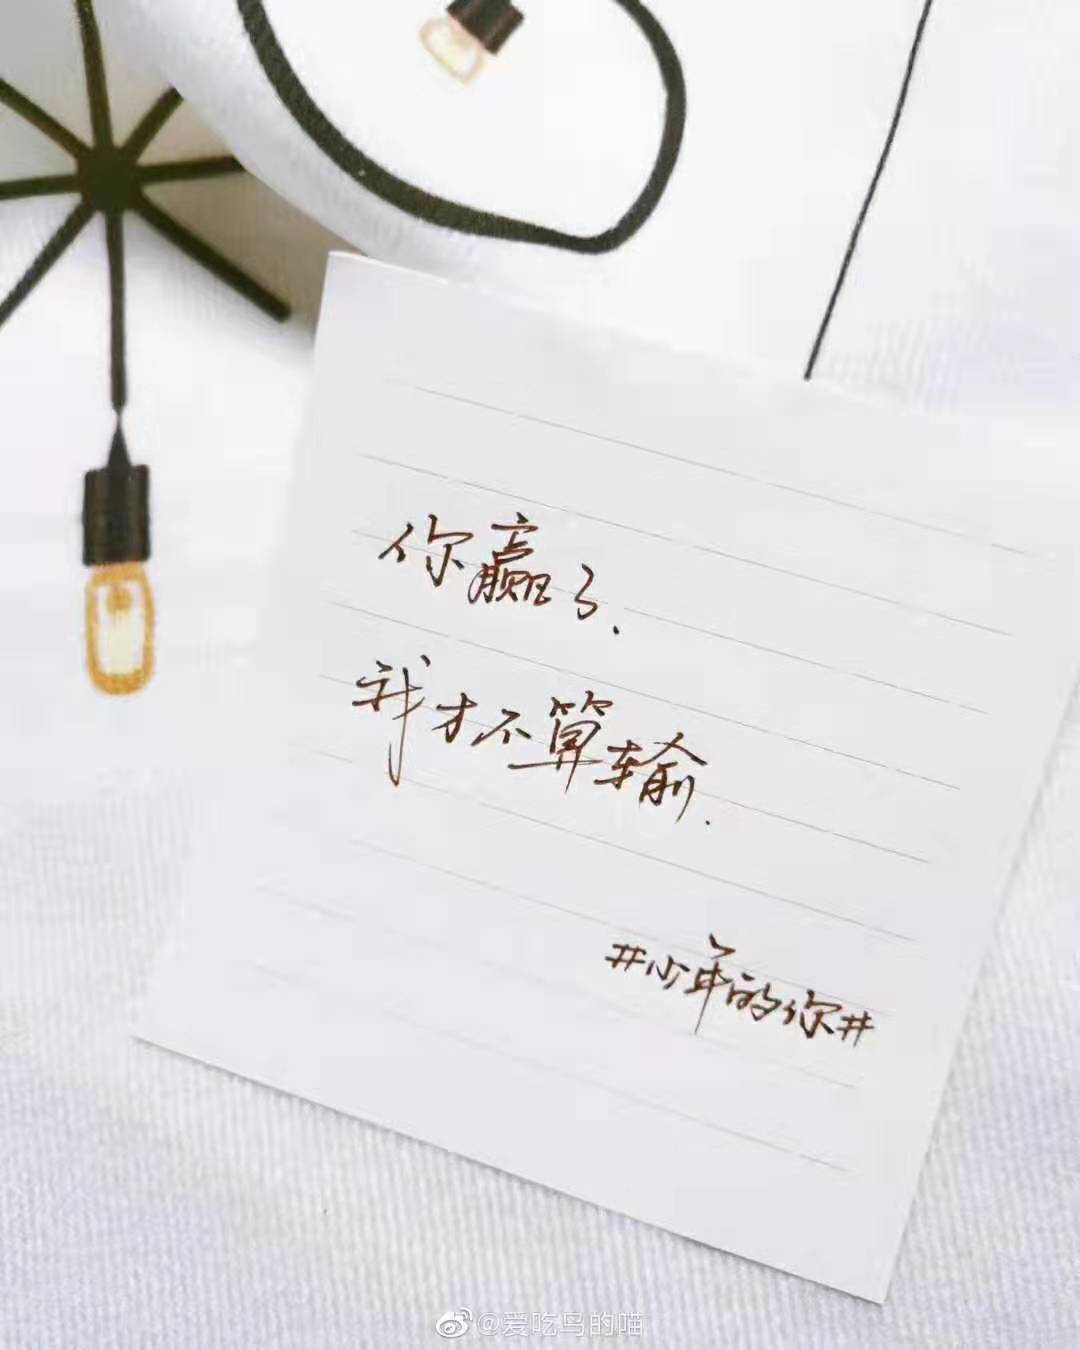 你赢了、
我才不算输.
#少年的你#
@爱吃鸟的喵